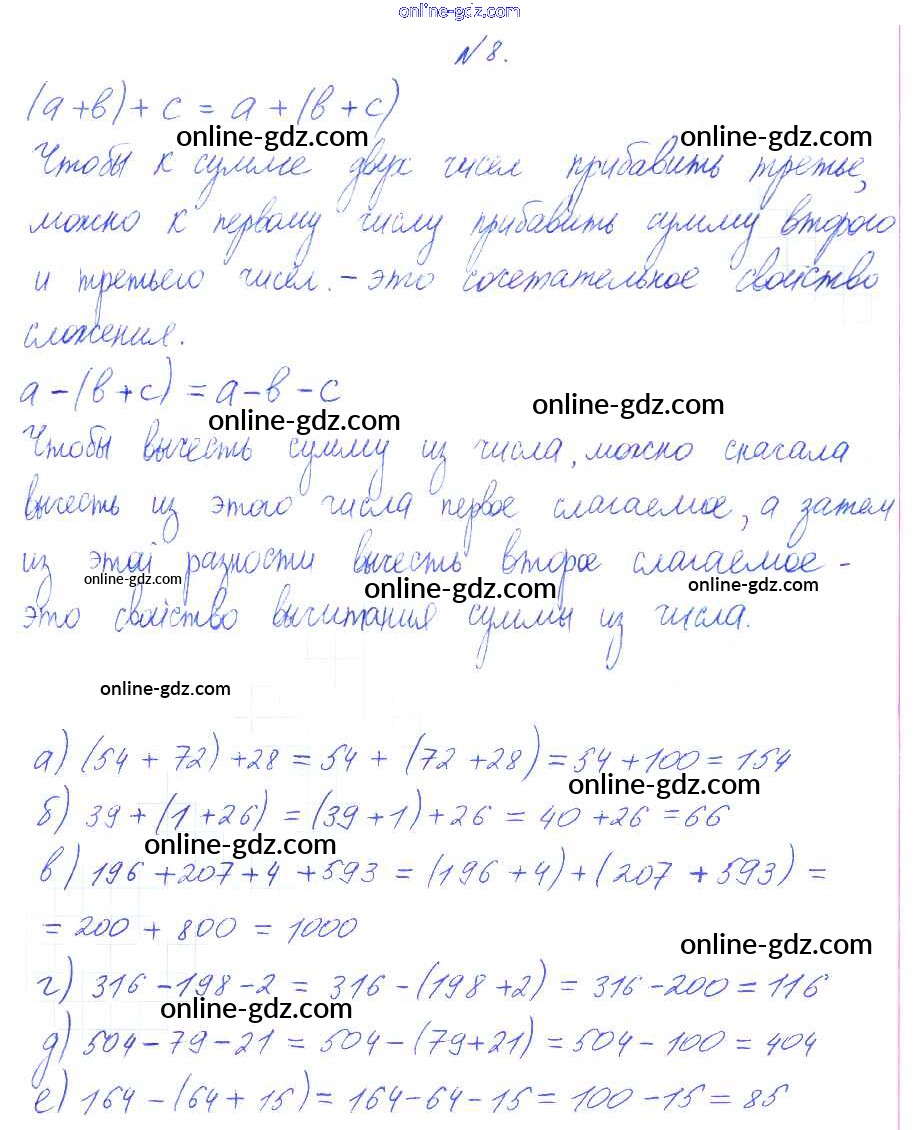 online-gdz.com
№ 8.
(а+в)+с = а+(в+с)
online-gdz.com online-gdz.com
Чтобы к сумме двух чисел прибавить третье,
можно к первому числу прибавить сумму второго
и третьего чисел. – это сочетательное свойство
сложения.
а-(в+с) = а-в-с
online-gdz.com online-gdz.com
Чтобы вычесть сумму из числа, можно сначала
вычесть из этого числа первое слагаемое, а затем
из этой разности вычесть второе слагаемое -
online-gdz.com online-gdz.com online-gdz.com
это свойство вычитания суммы из числа.
online-gdz.com
а) (54 + 72) +28 = 54 + (72 +28) = 54 +100 = 154
online-gdz.com
б) 39 + (1 +26) = (39 +1) +26 = 40 +26 =66
online-gdz.com
в) 196 +207 +4 +593 = (196 +4) + (207 +593) =
= 200 + 800 = 1000
online-gdz.com
г) 316 -198 -2 = 316 -(198 +2) = 316 -200 = 116
online-gdz.com
д) 504 - 79 - 21 = 504 - (79+21) = 504 - 100 = 404
е) 164 - (64 + 15) = 164 - 64 - 15 = 100 - 15 = 85